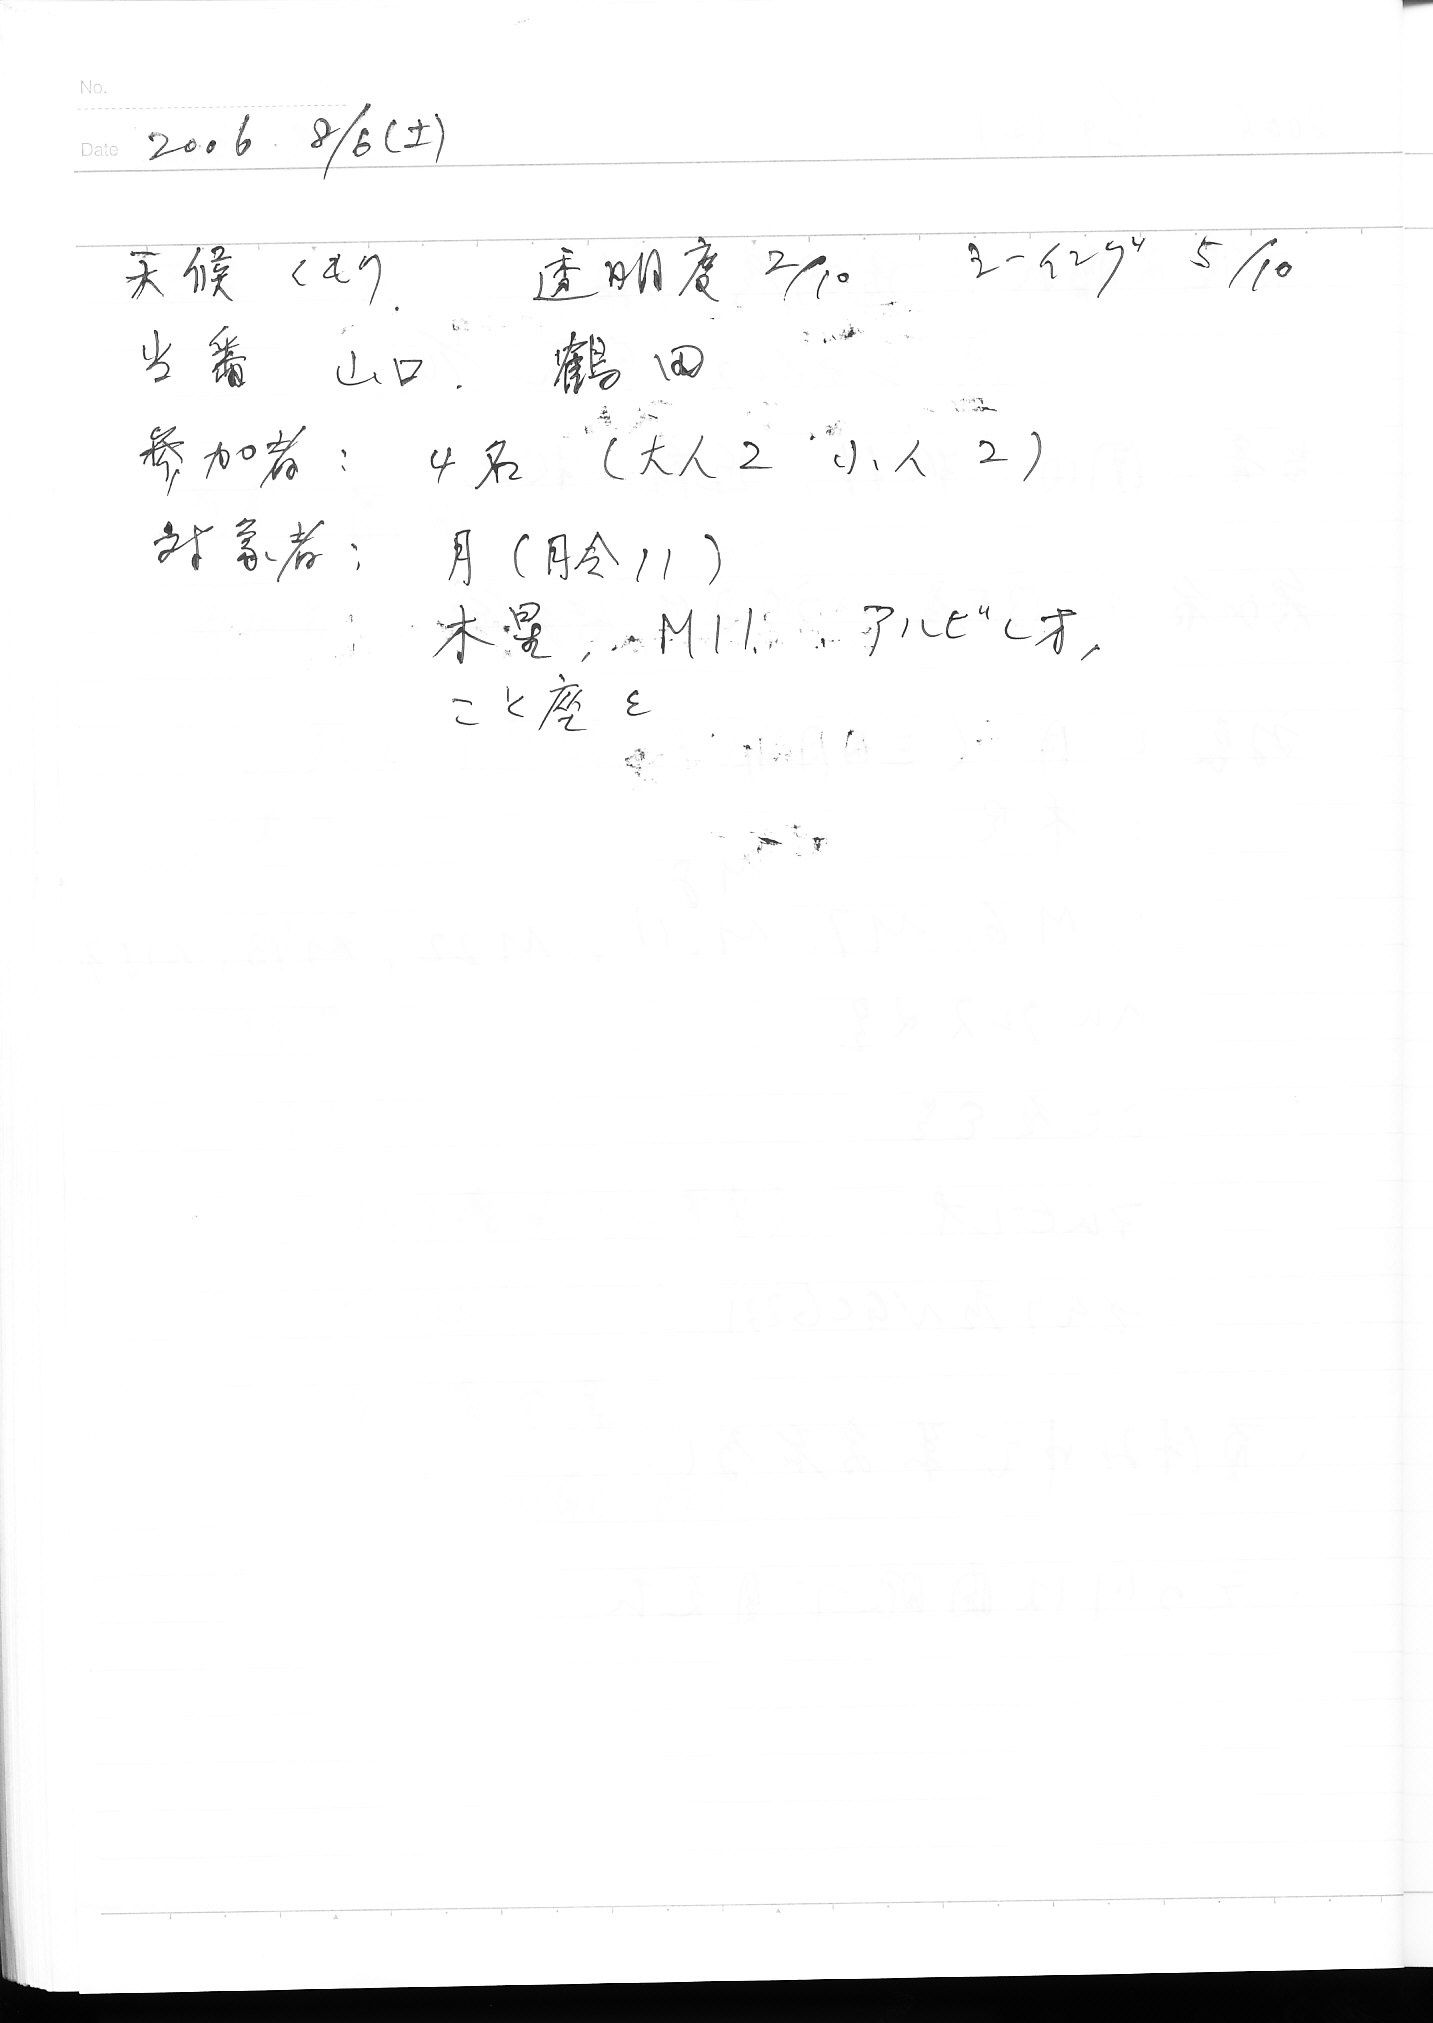 No.
Date 2006. 8/6(土)
天候 くもり. 透明度 2/10 シーイング 5/10
当番 山口. 鶴田
参加者: 4名 (大人2 小人 2)
対象者: 月(月令11)
木星, M11. アルビレオ,
こと座 ε